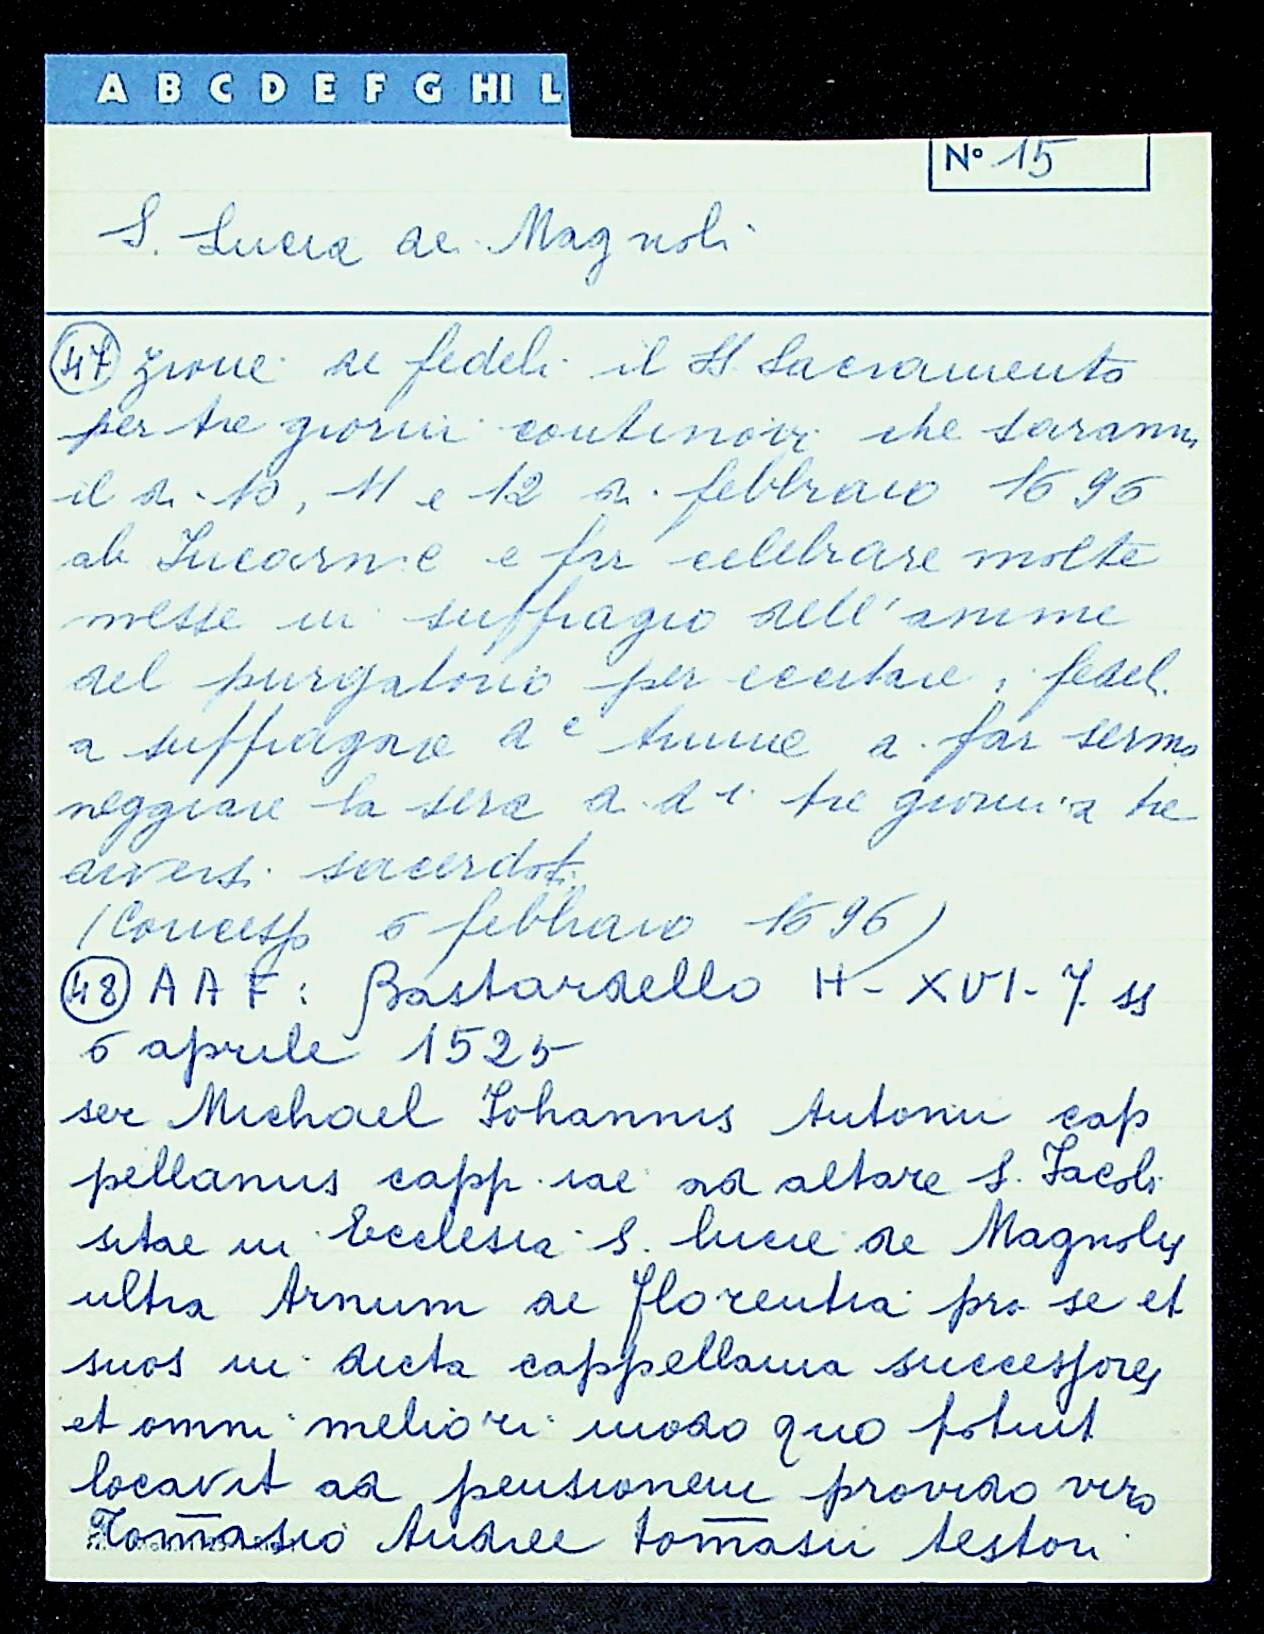 A B C D E F G HI L
N° 15
S. Lucia de Magnoli
47 zione de fedeli il SS Sacramento
per tre giorni continovi che saranno
il di 10, 11 e 12 di febbraio 1696
ab Incarn.e e far celebrare molte
messe in suffragio dell'anime
del purgatorio per eccitare i fedeli
a suffragare de Anime a far sermo
neggiare la sera di di tre giorni a tre
diversi sacerdoti
(Concesso 6 febbraio 1696)
48 AAF: Bastardello H-XVI-7 ss
6 aprile 1525
ser Michael Iohannis Antonii cap
pellanus capp.iae ad altare S. Iacobi
sitae in Ecclesia S. Lucie de Magnolis
ultra Arnum de Florentia pro se et
suos in dicta cappellania successores
et omni meliori modo quo potuit
locavit ad pensionem provido viro
Tomasio Andree Tomasii testori